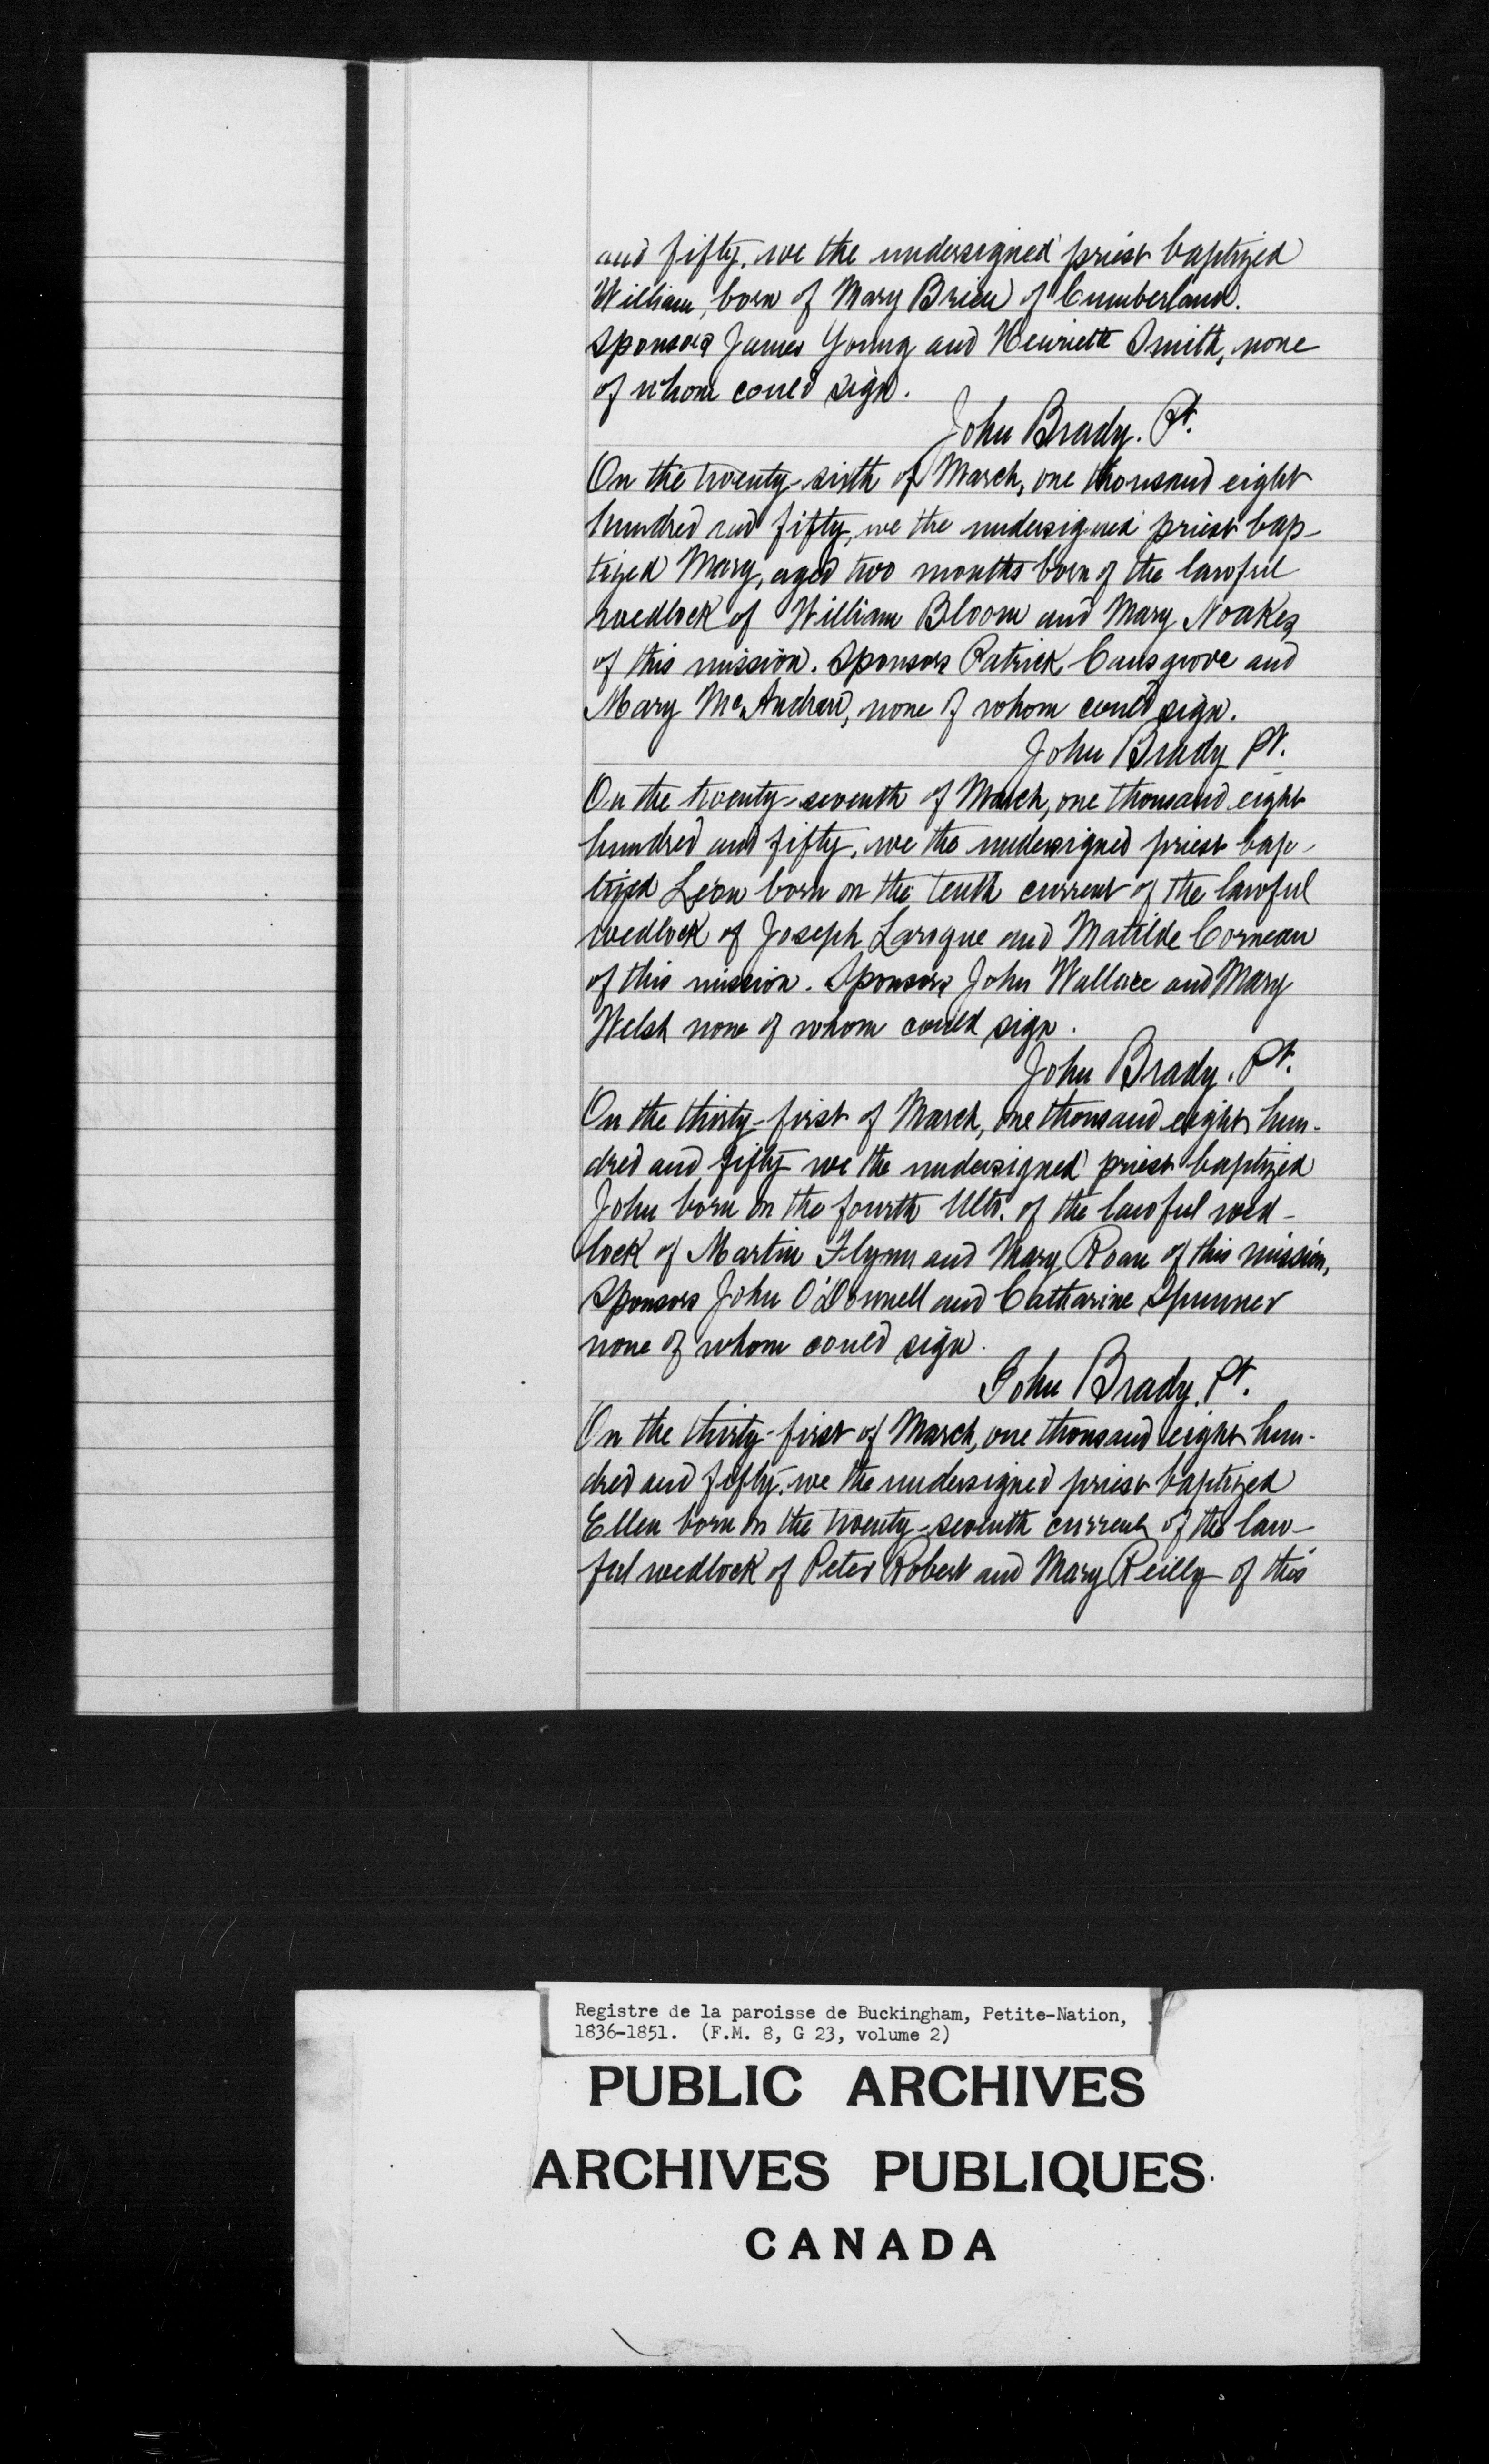 and fifty, we the undersigned priest baptized
William, born of Mary Brien of Cumberland.
Sponsors James Young and Henriette Smith, none
of whom could sign.
John Brady. Pt.
On the twenty-sixth of March, one thousand eight
hundred and fifty, we the undersigned priest bap-
tized Mary, aged two months born of the lawful
wedlock of William Bloom and Mary Noakes
of this mission. Sponsors Patrick Causgrove and
Mary McAndrew, none of whom could sign.
John Brady Pt.
On the twenty-seventh of March, one thousand eight
hundred and fifty, we the undersigned priest bap-
tized Léon born on the tenth current of the lawful
wedlock of Joseph Laroque and Matilde Corneau
of this mission. Sponsors John Wallace and Mary
Welsh none of whom could sign.
John Brady. Pt.
On the thirty-first of March, one thousand eight hun-
dred and fifty we the undersigned priest baptized
John born on the fourth Ulto. of the lawful wed-
lock of Martin Flynn and Mary Roan of this mission,
Sponsors John O'Donnell and Catharine Spunner
none of whom could sign.
John Brady. Pt.
On the thirty-first of March, one thousand eight hun-
dred and fifty, we the undersigned priest baptized
Ellen born on the twenty-seventh current of the law-
ful wedlock of Peter Robert and Mary Reilly of this
Registre de la paroisse de Buckingham, Petite-Nation,
1836-1851. (F.M. 8, G 23, volume 2)
PUBLIC ARCHIVES
ARCHIVES PUBLIQUES
CANADA